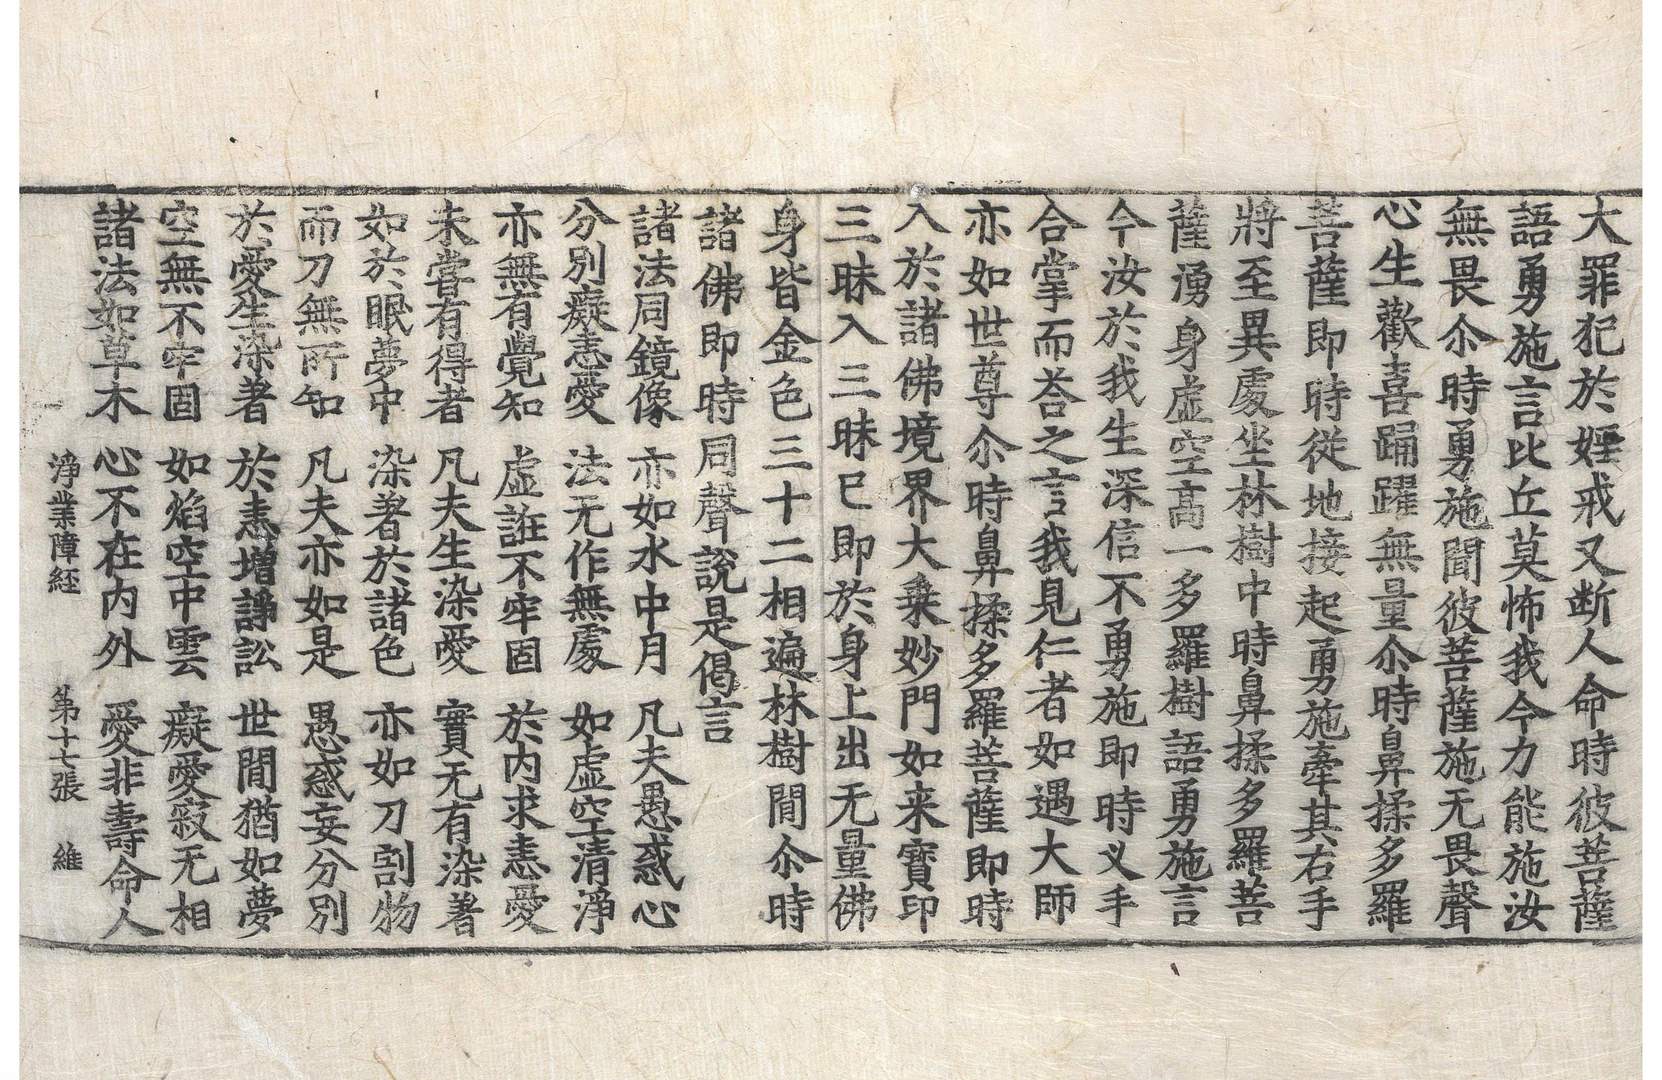 大罪犯於婬戒又断人命時彼菩薩
語勇施言比丘莫怖我今力能施汝
無畏尒時勇施聞彼菩薩施无畏聲
心生歡喜踊躍無量尒時鼻揉多羅
菩薩即時從地接起勇施牽其右手
將至異處坐林樹中時鼻揉多羅菩
薩湧身虛空髙一多羅樹語勇施言
今汝於我生深信不勇施即時义手
合掌而荅之言我見仁者如遇大師
亦如世尊尒時鼻揉多羅菩薩即時
入於諸佛境界大乗妙門如来寶印
三昧入三昧巳即於身上出无量佛
身皆金色三十二相遍林樹間尒時
諸佛即時同聲說是偈言
諸法同鏡像 亦如水中月 凡夫愚惑心
分別癡恚愛 法无作無處 如虛空清淨
亦無有覺知 虛誑不牢固 於内求恚愛
未甞有得者 凡夫生染愛 實无有染著
如於眠夢中 染著於諸色 亦如刀割物
而刀無所知 凡夫亦如是 愚惑妄分別
於愛生染著 於恚増諍訟 世間猶如夢
空無不牢固 如焰空中雲 癡愛寂无相
諸法如草木 心不在内外 愛非壽命人
淨業障經 第十七張 維